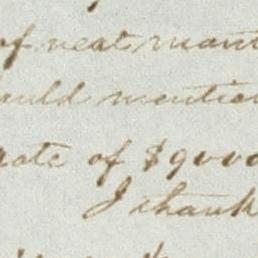 of neat man
ould mention
rate of $9000
I thank